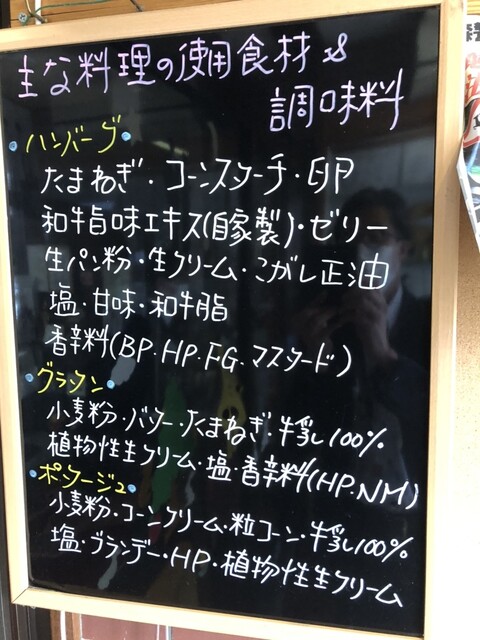 主な料理の使用食材&
調味料
ハンバーグ
たまねぎ・コーンスターチ・卵
和牛旨味エキス(自家製)・ゼリー
生パン粉・生クリーム・こがし正油
塩・甘味・和牛脂
香辛料(BP.HP.FG.マスタード)
グラタン
小麦粉・バター・たまねぎ・牛乳100%
植物性生クリーム・塩・香辛料(HP.NM)
ポタージュ
小麦粉・コーンクリーム・粒コーン・牛乳100%
塩・ブランデー・HP・植物性生クリーム